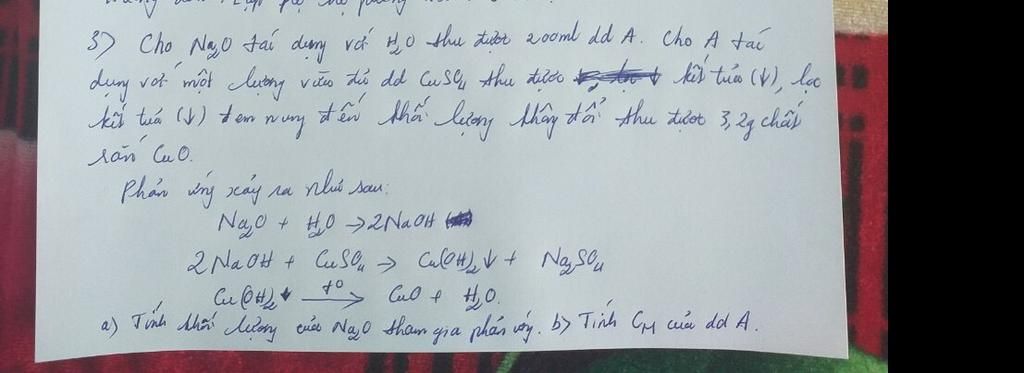 3) Cho Na₂O tác dụng với H₂O thu được 200ml dd A. Cho A tác
dụng với một lượng vừa đủ dd CuSO₄ thu được kết tủa (↓), lọc
kết tủa (↓) đem nung đến khối lượng không đổi thu được 3,2g chất
rắn CuO.
Phản ứng xảy ra như sau:
Na₂O + H₂O → 2NaOH
2NaOH + CuSO₄ → Cu(OH)₂↓ + Na₂SO₄
Cu(OH)₂↓ —t°→ CuO + H₂O.
a) Tính khối lượng của Na₂O tham gia phản ứng. b) Tính C_M của dd A.